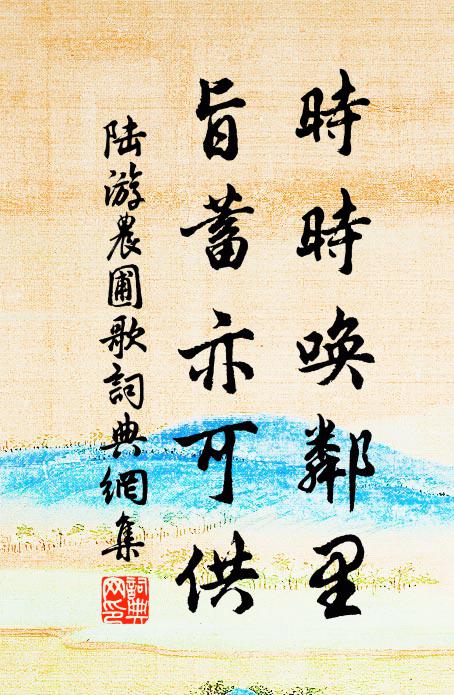 時時喚鄰里
旨蓄亦可供
陸游農圃歌詞典網集